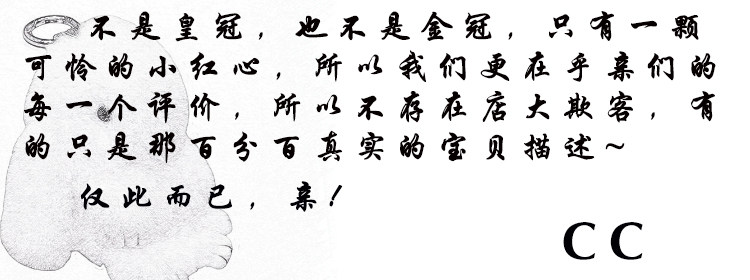 不是皇冠，也不是金冠，只有一颗
可怜的小红心，所以我们更在乎亲们的
每一个评价，所以不存在店大欺客，有
的只是那百分百真实的宝贝描述~
仅此而已，亲！
CC